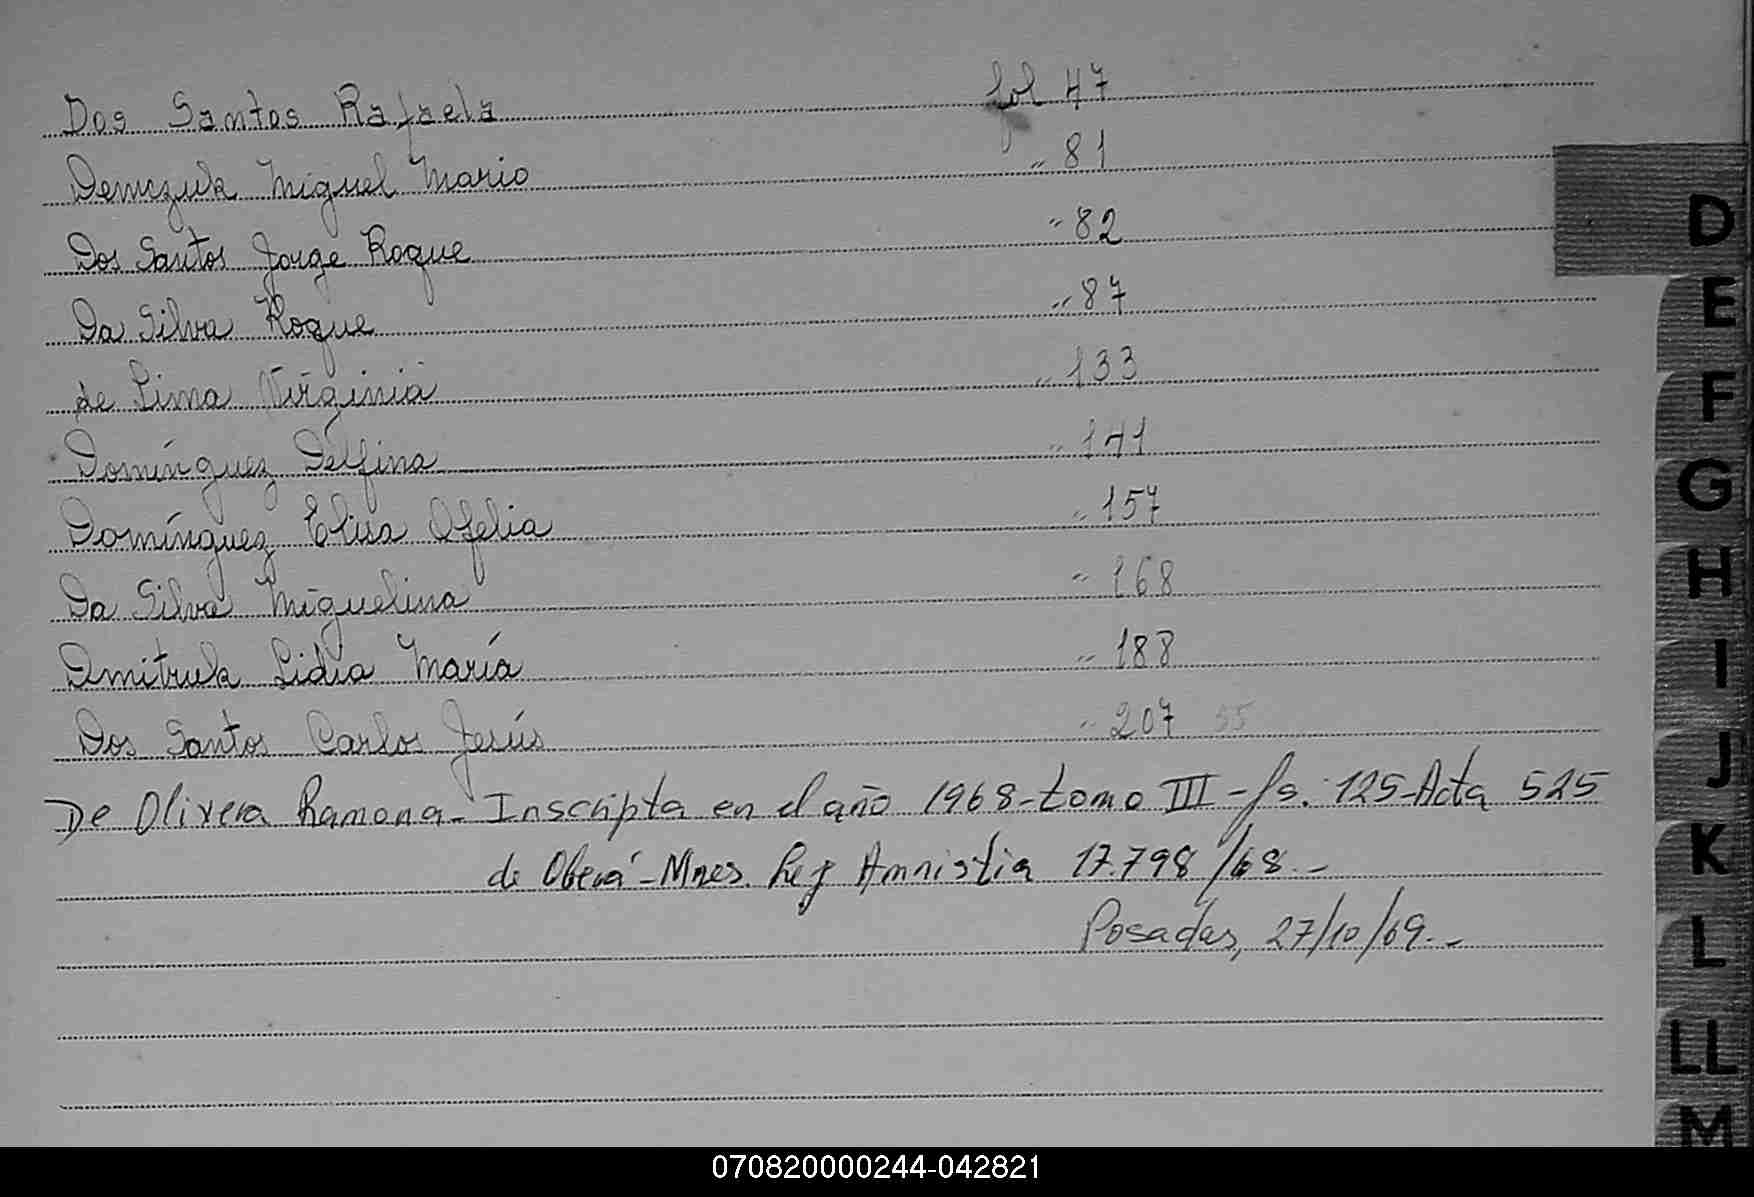 Dos Santos Rafaela fol 47
Demczuk Miguel Mario " 81
Dos Santos Jorge Roque " 82
Da Silva Roque " 87
de Lima Virginia " 133
Domínguez Delfina " 141
Domínguez Elisa Ofelia " 157
Da Silva Miguelina " 168
Dmitruk Lidia María " 188
Dos Santos Carlos Jesús " 207 55
De Olivera Ramona - Inscripta en el año 1968 - tomo III - fs. 125 - Acta 525
de Oberá - Mnes. Ley Amnistia 17.798/68.-
Posadas, 27/10/69.-
D
E
F
G
H
I
J
K
L
LL
M
070820000244-042821